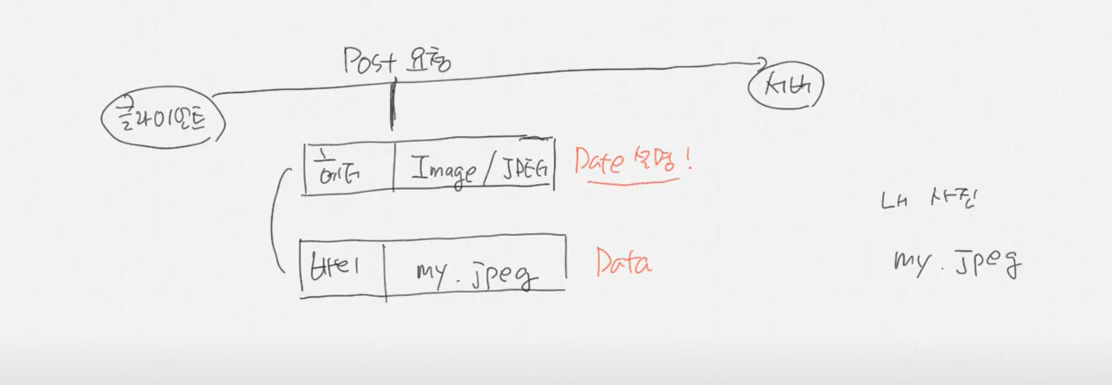 Post 요청
클라이언트
서버
헤더 Image/JPEG Date 설명!
내 사진
바디 my.jpeg Data
my.jpeg